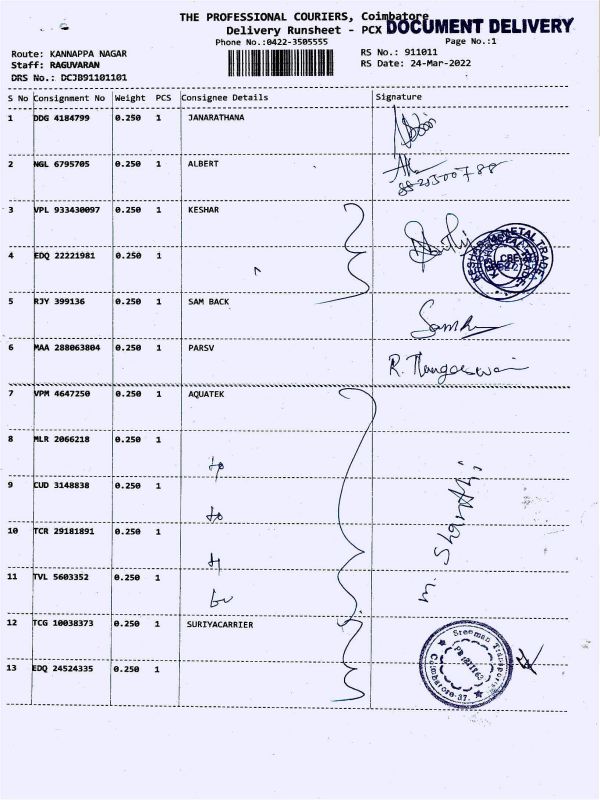 THE PROFESSIONAL COURIERS, Coimbatore
Delivery Runsheet - PCX DOCUMENT DELIVERY
Phone No.:0422-3505555 Page No.:1
Route: KANNAPPA NAGAR RS No.: 911011
Staff: RAGUVARAN RS Date: 24-Mar-2022
DRS No.: DCJB91101101
S No Consignment No Weight PCS Consignee Details Signature
1 DDG 4184799 0.250 1 JANARATHANA
2 NGL 6795705 0.250 1 ALBERT
3 VPL 933430097 0.250 1 KESHAR
4 EDQ 22221981 0.250 1
5 RJY 399136 0.250 1 SAM BACK
6 MAA 288063804 0.250 1 PARSV
7 VPM 4647250 0.250 1 AQUATEK
8 MLR 2066218 0.250 1
9 CUD 3148838 0.250 1
10 TCR 29181891 0.250 1
11 TVL 5603352 0.250 1
M. Sharathi
12 TCG 10038373 0.250 1 SURIYACARRIER
13 EDQ 24524335 0.250 1
Sreeman Transports
Coimbatore-37.